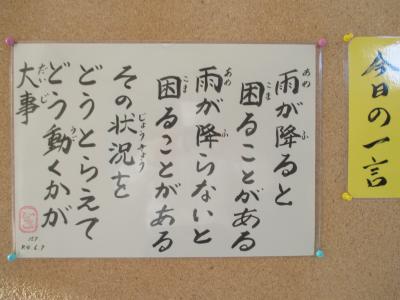 今日の一言
雨が降ると
困ることがある
雨が降らないと
困ることがある
その状況を
どうとらえて
どう動くかが
大事
あめ
ふ
こま
あめ
ふ
こま
じょうきょう
うご
だいじ
R4.6.7